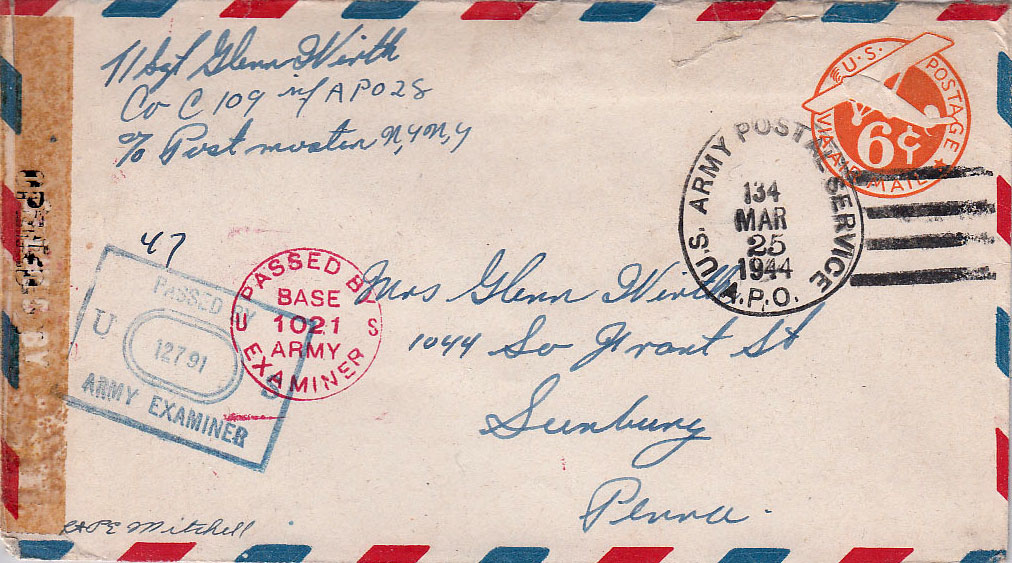 11 Sgt Glenn Wirth
Co C 109 inf APO 28
c/o Postmaster N,Y N,Y
U.S. POSTAGE
6¢
VIA AIR MAIL
U.S. ARMY POSTAL SERVICE
134
MAR
25
1944
A.P.O.
47
PASSED BY
U S
12791
ARMY EXAMINER
PASSED BY
BASE
U 1021 S
ARMY
EXAMINER
Mrs Glenn Wirth
1044 So Grant St
Sunbury
Penna.
Mitchell